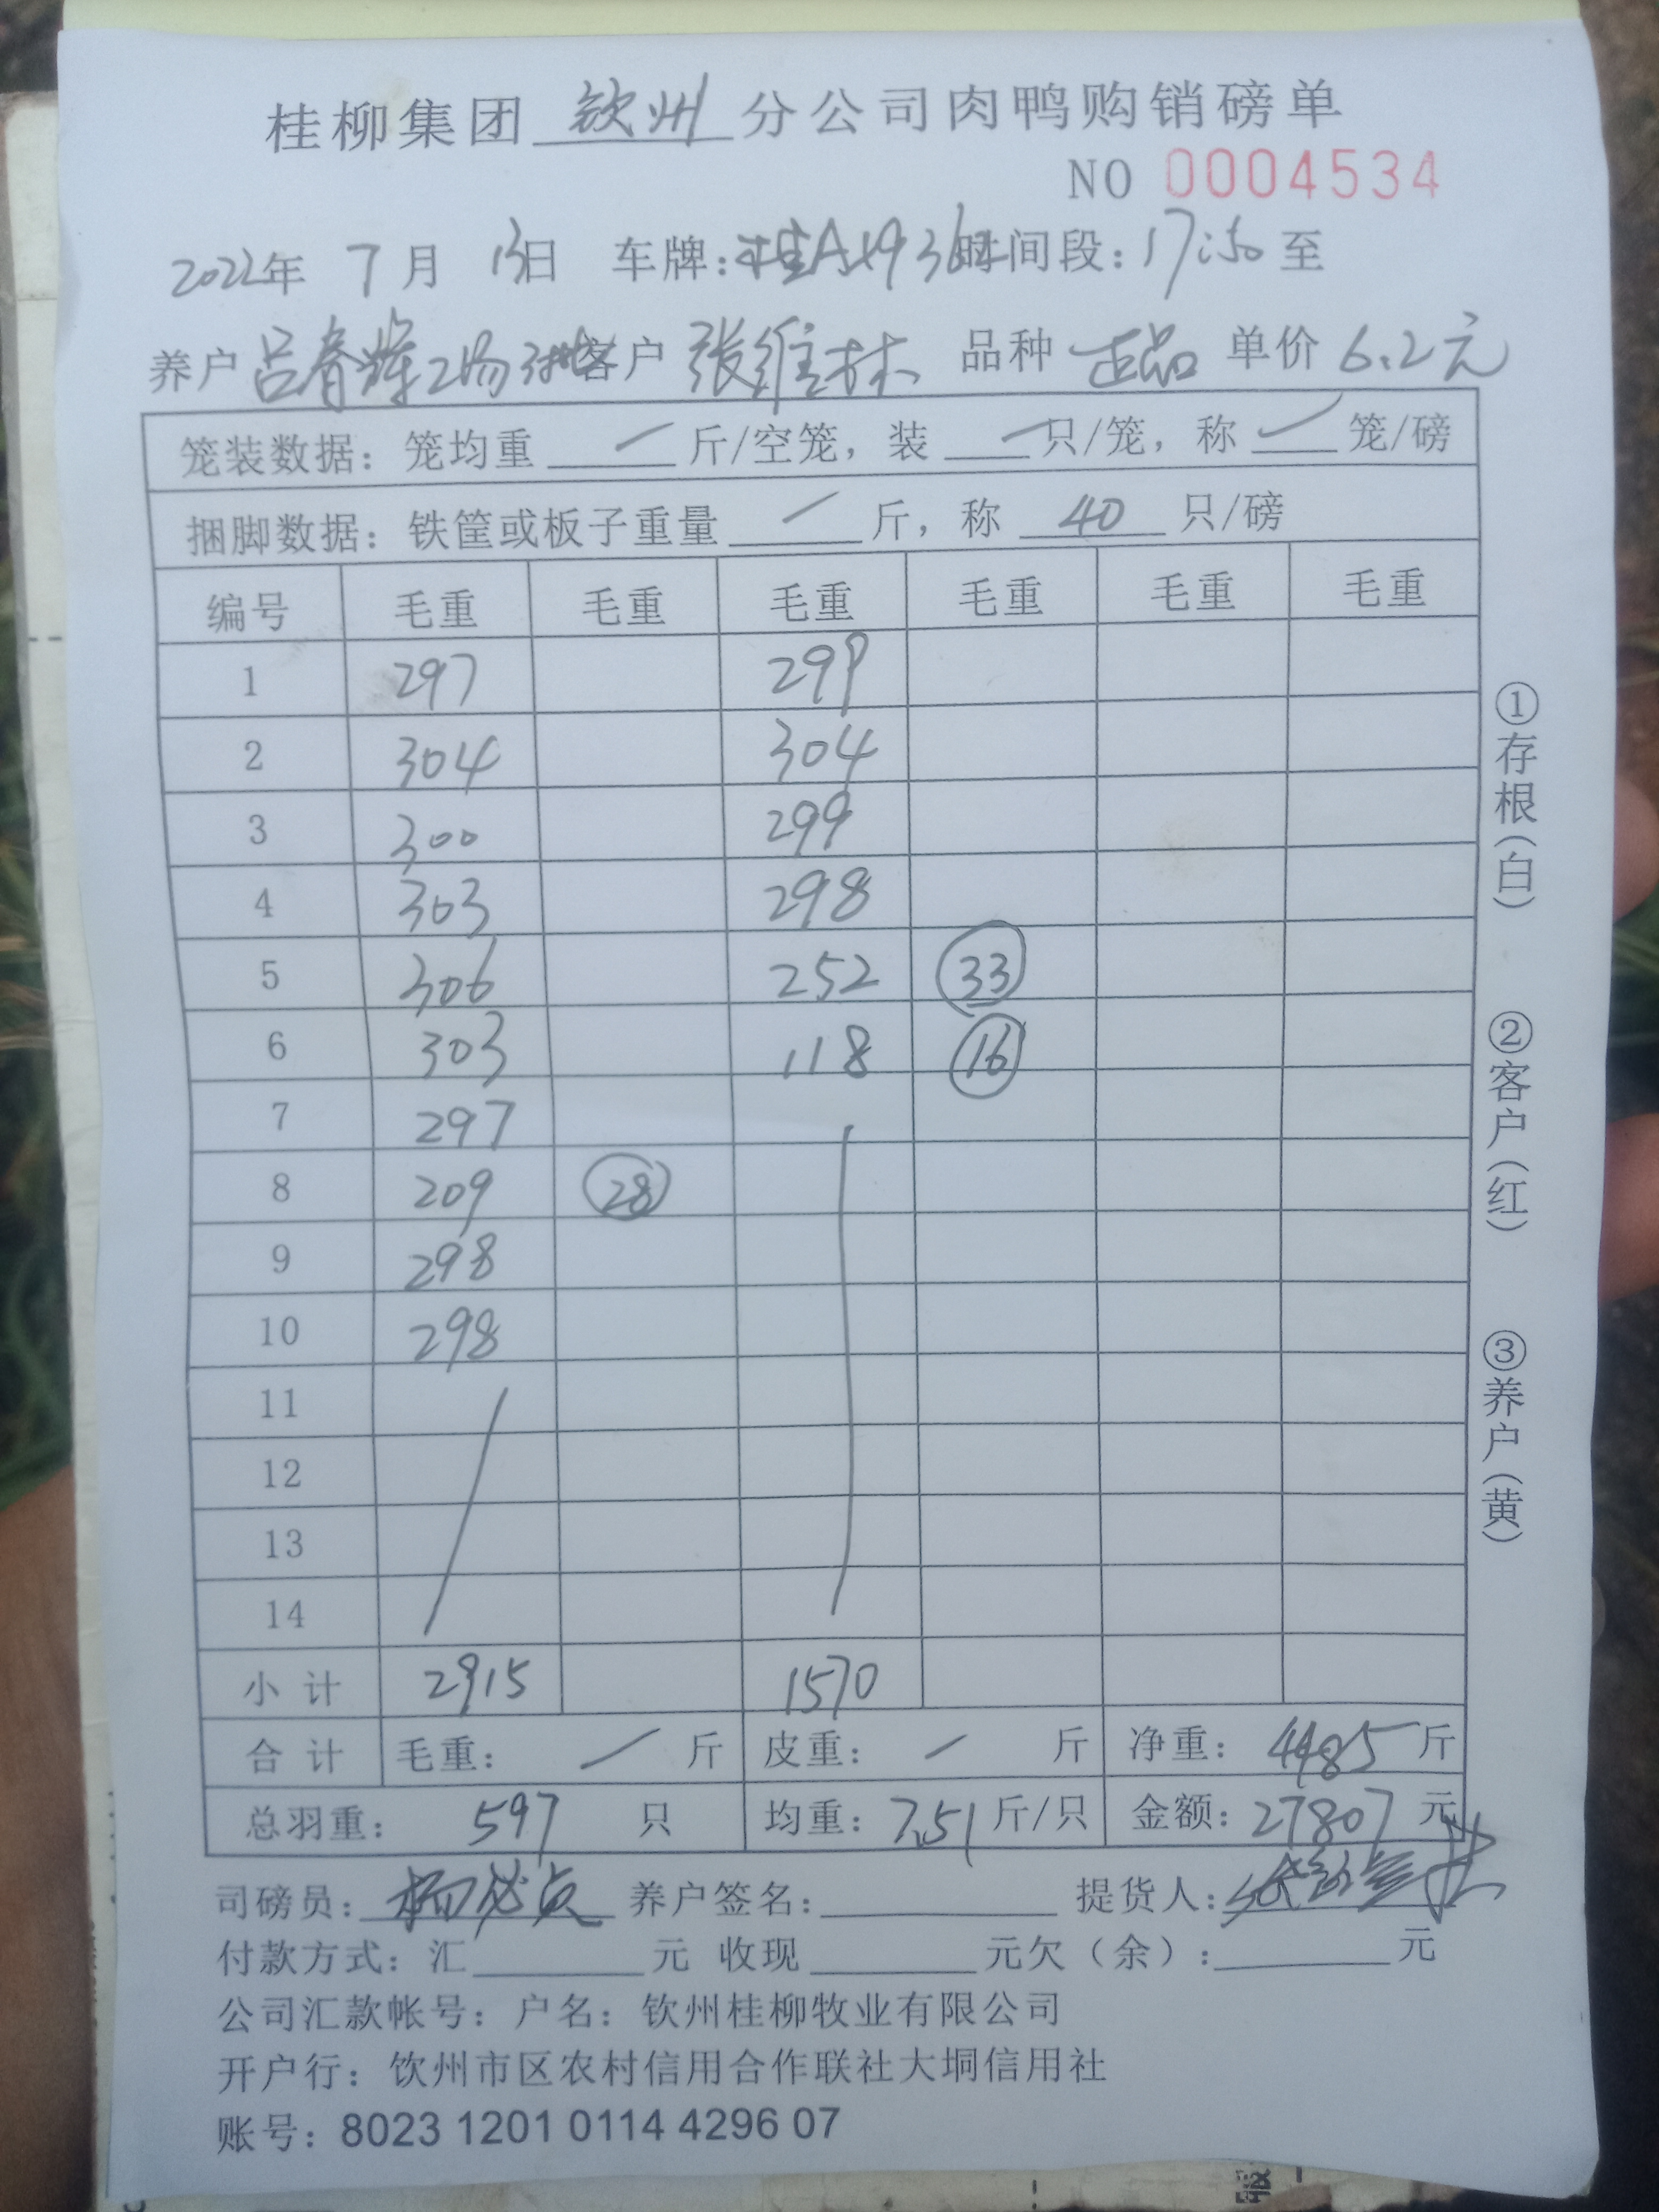 桂柳集团 钦州 分公司肉鸭购销磅单
NO 0004534
2022年 7月 13日 车牌:桂A 时间段:17:50 至
养户 吕春辉2场 客户 张维林 品种 正品 单价 6.2元
笼装数据: 笼均重 / 斤/空笼, 装 / 只/笼, 称 / 笼/磅
捆脚数据: 铁筐或板子重量 / 斤, 称 40 只/磅
编号 毛重 毛重 毛重 毛重 毛重 毛重
1 297 299
2 304 304
3 300 299
4 303 298
5 306 252 33
6 303 118 16
7 297
8 209 28
9 298
10 298
11
12
13
14
小计 2915 1570
合计 毛重: / 斤 皮重: / 斤 净重: 4485 斤
总羽重: 597 只 均重: 7.51 斤/只 金额: 27807 元
司磅员: 养户签名: 提货人:
付款方式: 汇 元 收现 元欠(余): 元
公司汇款帐号: 户名: 钦州桂柳牧业有限公司
开户行: 钦州市区农村信用合作联社大垌信用社
账号: 8023 1201 0114 4296 07
①存根(白)
②客户(红)
③养户(黄)